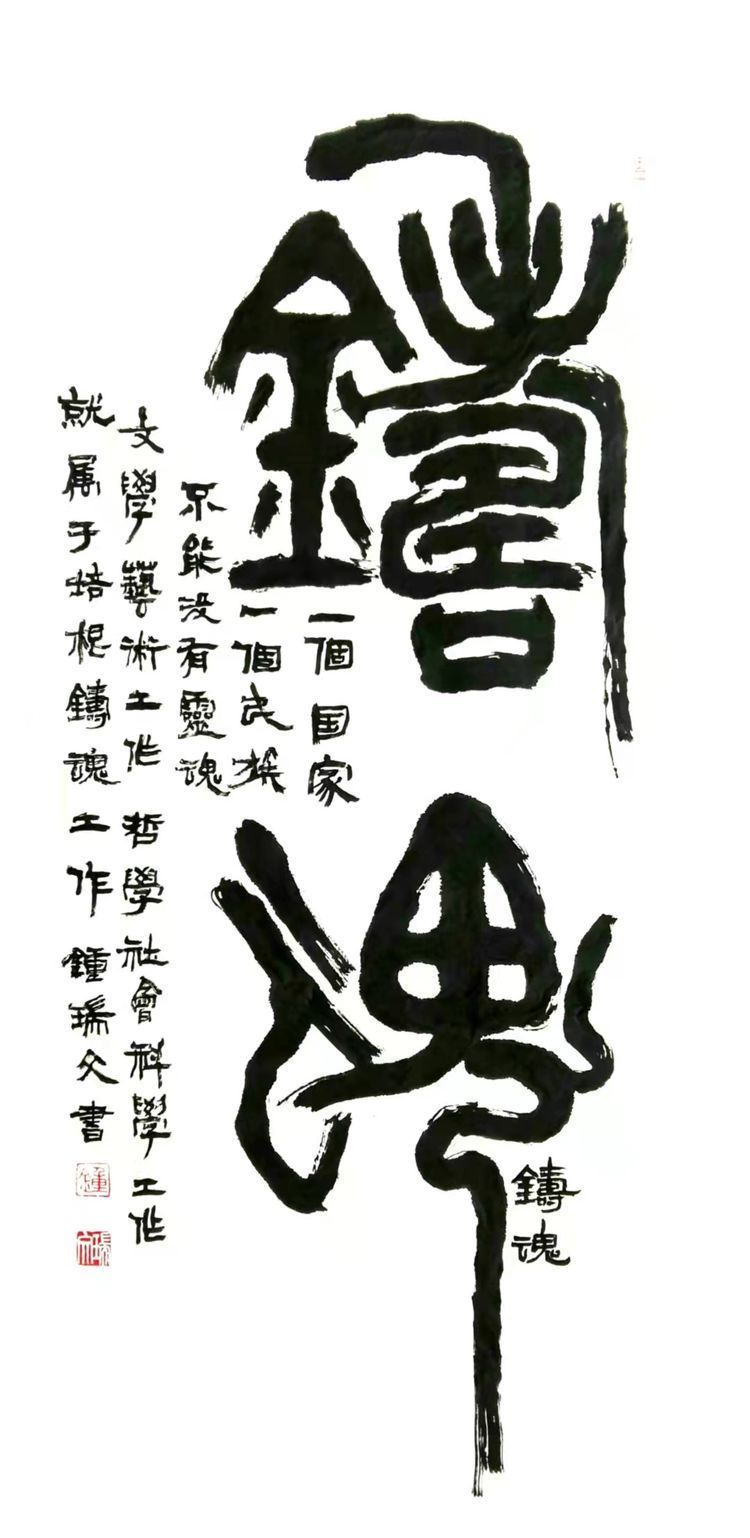 鑄魂
鑄魂
一個国家
一個民族
不能没有靈魂
文學藝術工作 哲學社會科學工作
就属于培根鑄魂工作 鍾瑞文書
鍾